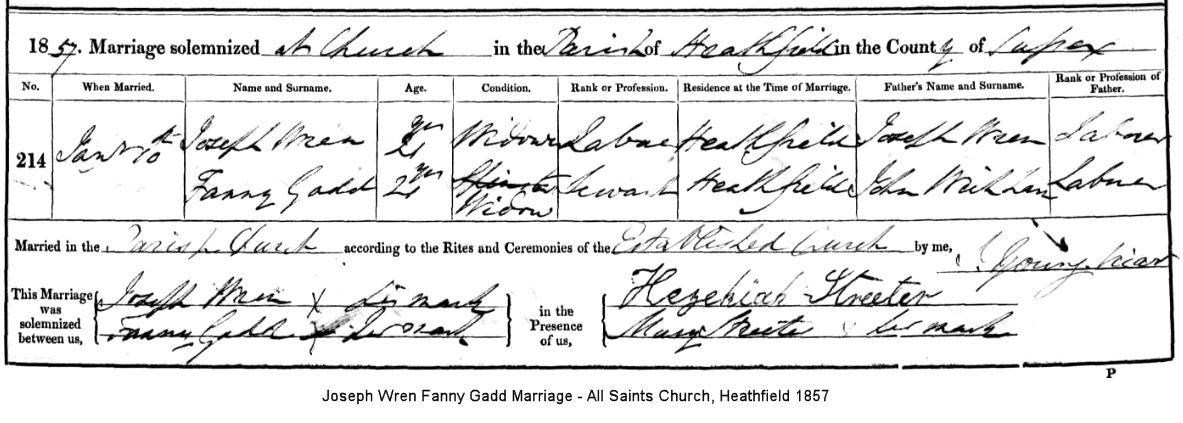 1857. Marriage solemnized at Church in the Parish of Heathfield in the County of Sussex
No. When Married. Name and Surname. Age. Condition. Rank or Profession. Residence at the Time of Marriage. Father's Name and Surname. Rank or Profession of Father.
214 Jan 10th Joseph Wren Widower Heathfield Joseph Wren Labourer
Fanny Gadd Spinster Heathfield John Labourer
Widow
Married in the Parish Church according to the Rites and Ceremonies of the Established Church by me, Young Vicar
This Marriage was solemnized between us, Joseph Wren X his mark in the Presence of us, Hezekiah Streeter
Fanny Gadd X her mark Mary Streeter x her mark
P
Joseph Wren Fanny Gadd Marriage - All Saints Church, Heathfield 1857